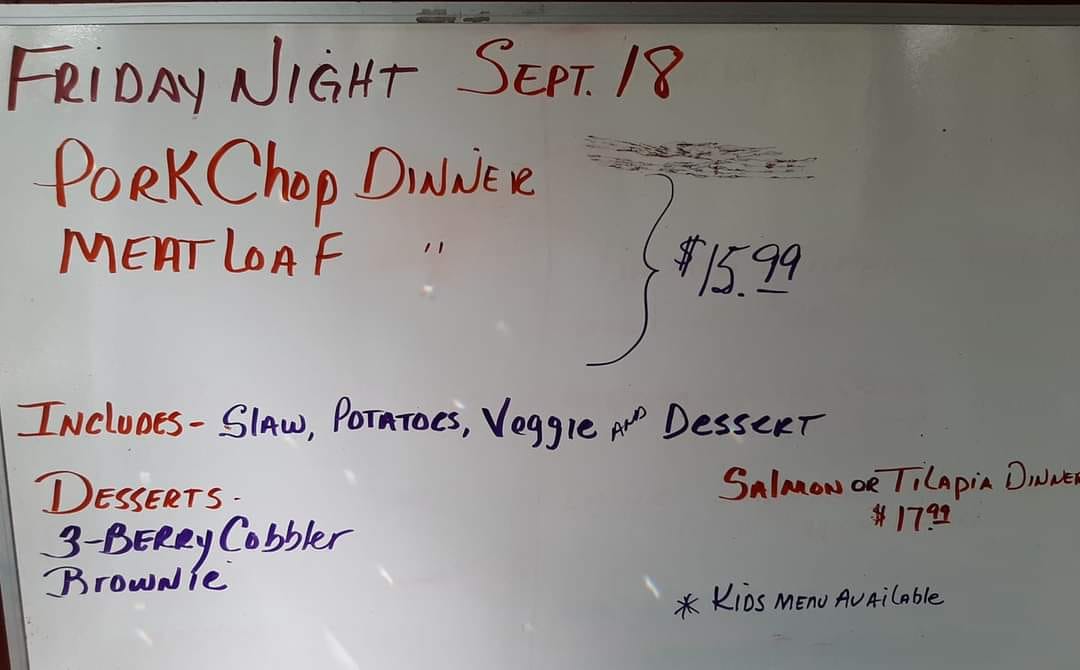 FRIDAY NIGHT SEPT. 18
PORK CHOP DINNER
MEATLOAF "
$15.99
INCLUDES - SLAW, POTATOES, Veggie AND DESSERT
DESSERTS -
3-BERRY Cobbler
BROWNIE
SALMON OR TILAPIA DINNER
$17.99
* KIDS MENU AVAILABLE